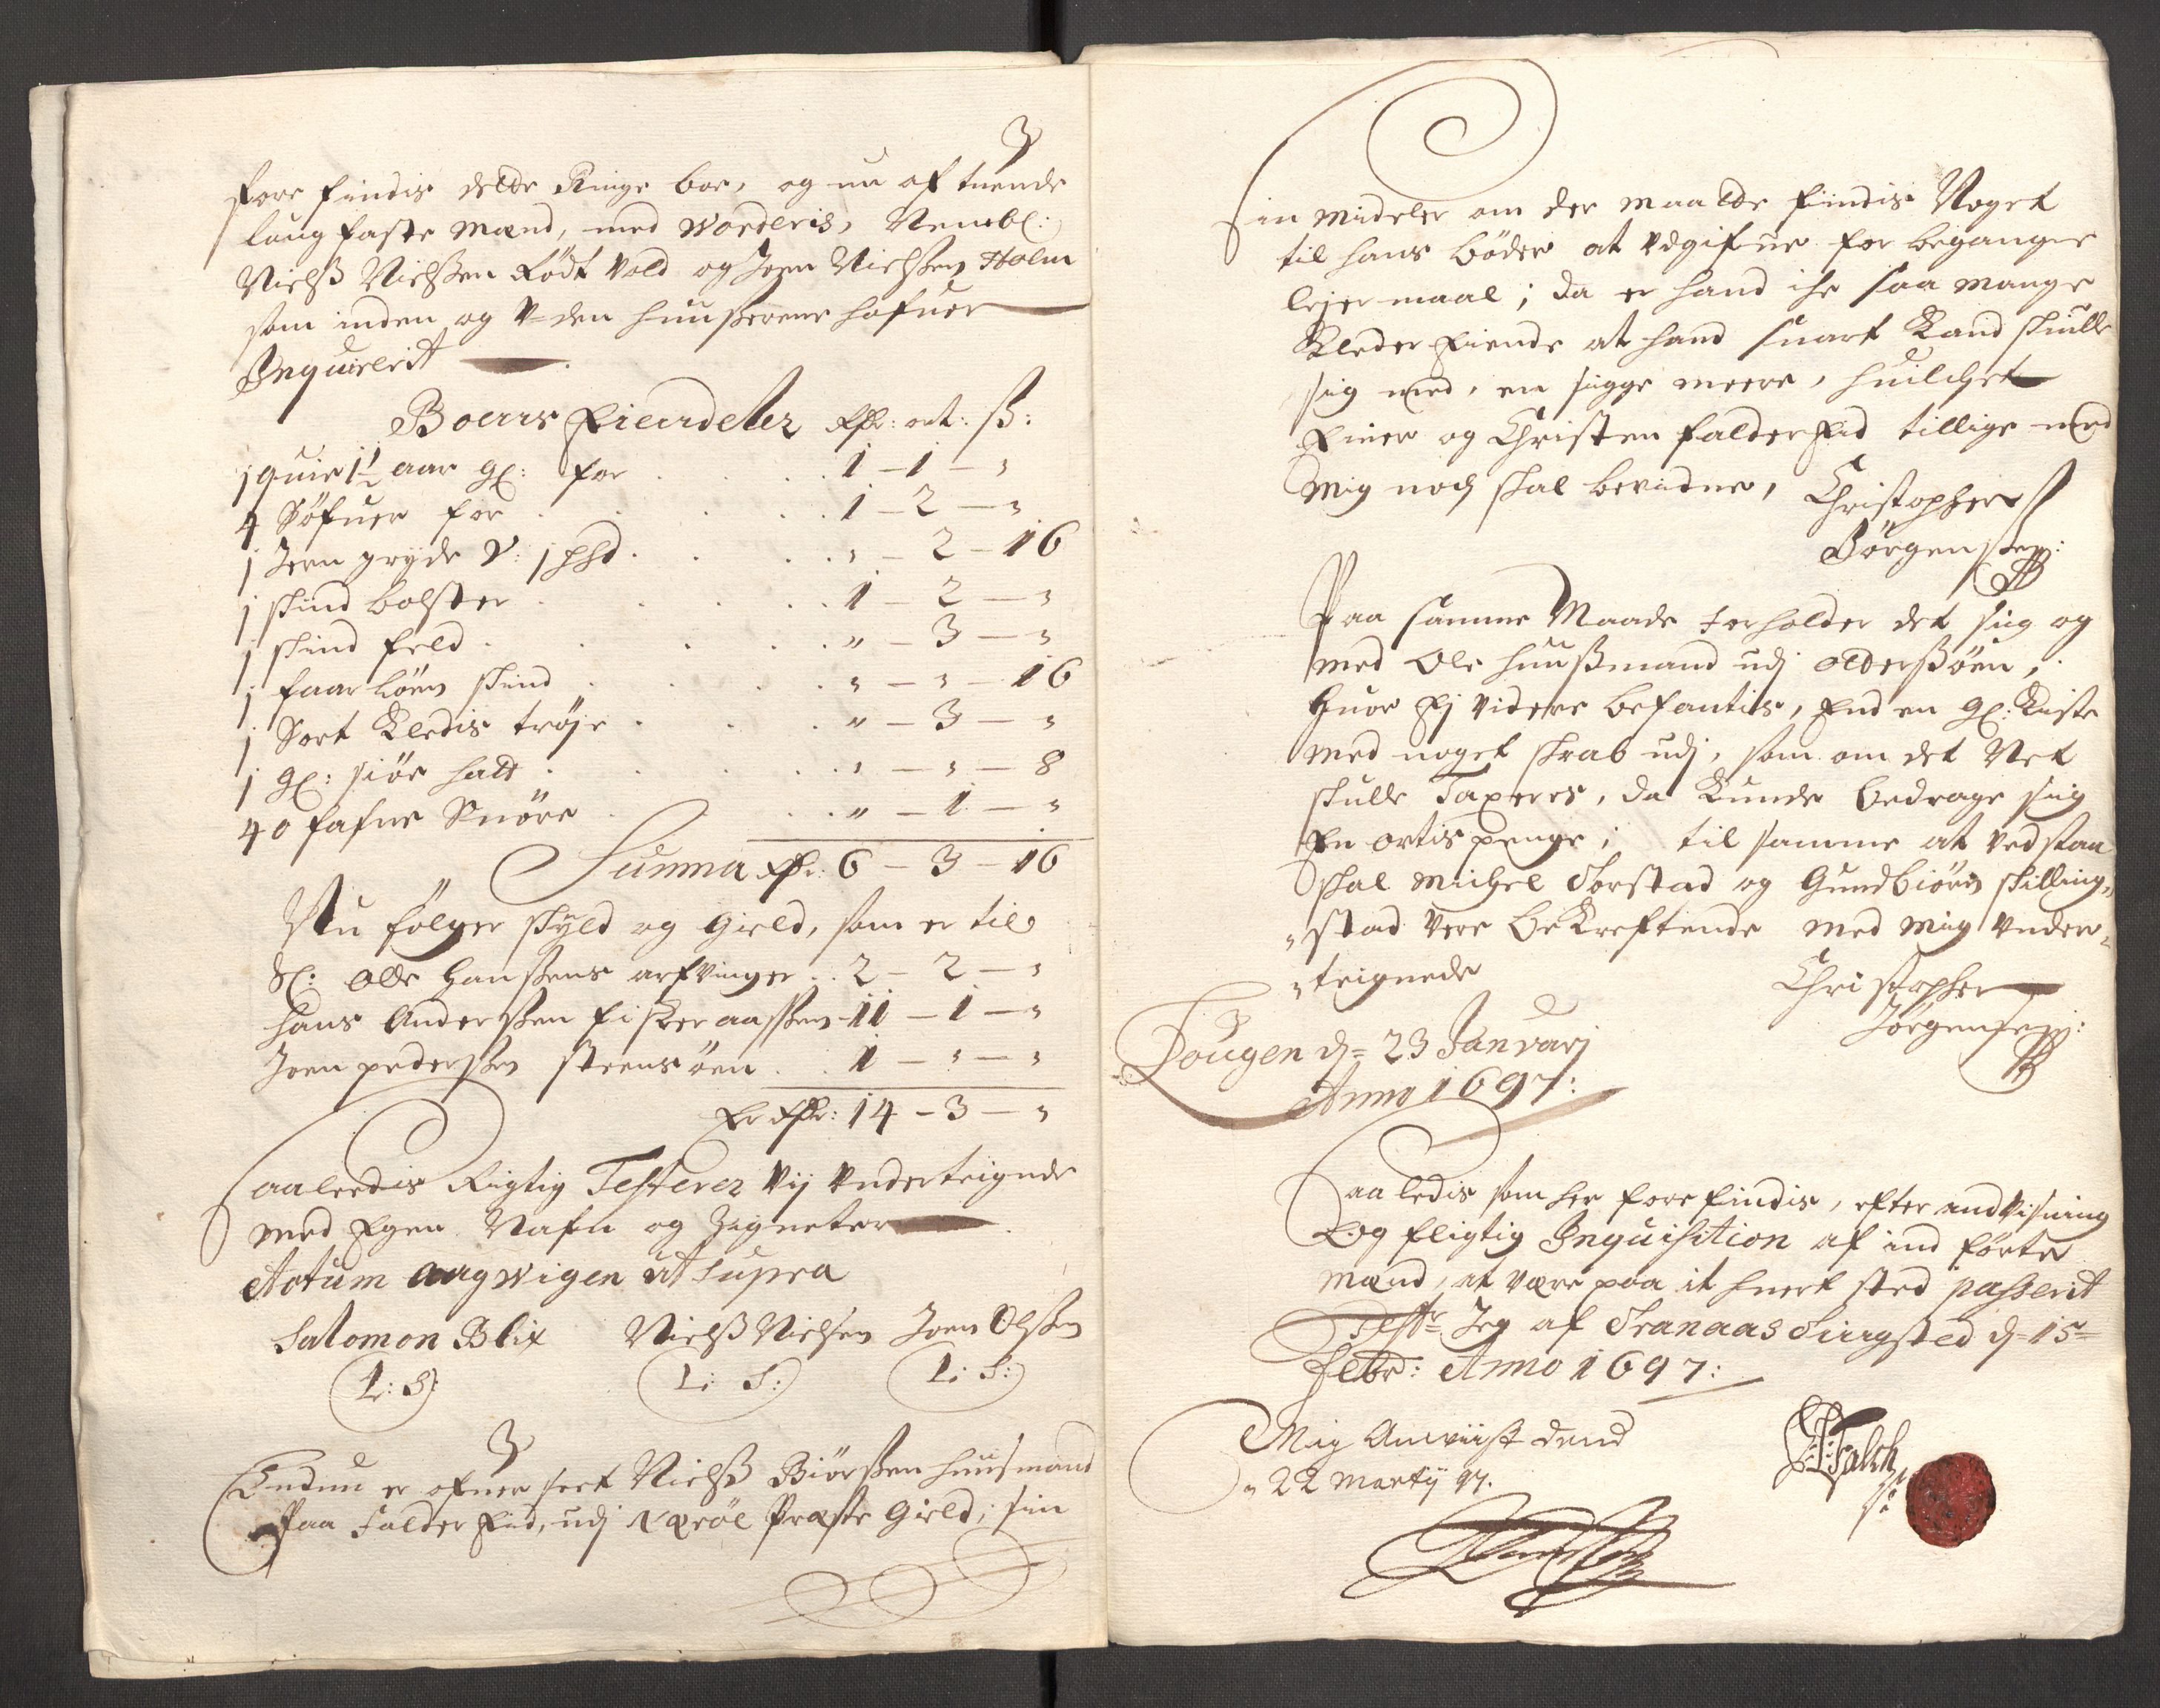 fore findis delde Ringe boe, og nu af tuende
laugfaste Mænd, med Vorderis, Nembl:
Nielß Nielßen Rödt Vold og Joen Nielßen Holm
som inden og V-den Huußerene hafuer
Inquirerit
Boens Eiendeler Rdr: ort: ß:
1 quie 1½ aar gl: for . . . 1 - 1 - "
4 Söfuer for . . . 1 - 2 - "
1 Jern gryde V: 1 phd . . . " - 2 - 16
1 skind bolster . . . 1 - 2 - "
1 skind feld . . . " - 3 - "
1 faar skind . . . " - " - 16
1 Sort Kledis tröje . . . " - 3 - "
1 gl: siöe hatt . . . " - " - 8
40 fafne Snöre . . . " - 1 - "
Summa Rdr: 6 - 3 - 16
Nu fölger skyld og gield, som er til
Sl: Olle Hanßens arfvinger . . 2 - 2 - "
Hans Anderßen Fiskeraaßen - 11 - 1 - "
Joen pederßen steensöen . . 1 - " - "
Er Rdr: 14 - 3 - "
Saaleedis Rigtig Testerer Vij Underteignede
med Egen Nafn og Zigneter
Actum aagwigen ut supra
Salomon Blix Nielß Nielsen Joen Olßen
L: S: L: S: L: S:
3
Endnu er ofuer seet Nielß Biörßen huusmand
Paa Falder Eid, udj Næröe Præste gield; sin
3
in mideler om der maatte findis Noget
til hans böder at udgifue for begangne
lejermaal; da er hand ike saa mange
Kleder Eiende at hand snart Kand skiulle
sig med, en sigge meere, huilchet
Einer og Christen falder Eid tillige med
Mig noch skal bevidne, Christopher
Jörgenßen:
Paa samme Maade forholder det sig og
med Ole huußmand udj olderßöen,
Huor Ej videre befantis, End en gl: Kiste
med noget skrab udj, som om det Ret
skulle Taxeres, da Kunde bedrage sig
En ortis penge; til samme at vedstaa
skal Michel Forstad og Gundbiörn skilling
stad Vere bekreftende med mig under
teignede Christopher
Jörgensen:
Fougen d= 23 Januarj
Anno 1697:
Saaledis som her forefindis, efter andvisning
Og fligtig Inquisition af indförte
Mænd, at være paa it huert sted passerit
Testr Jeg af Tranaas Tingsted d= 15
Febr: Anno 1697:
Mig Anviist dend
22 Martij 97.
Falch